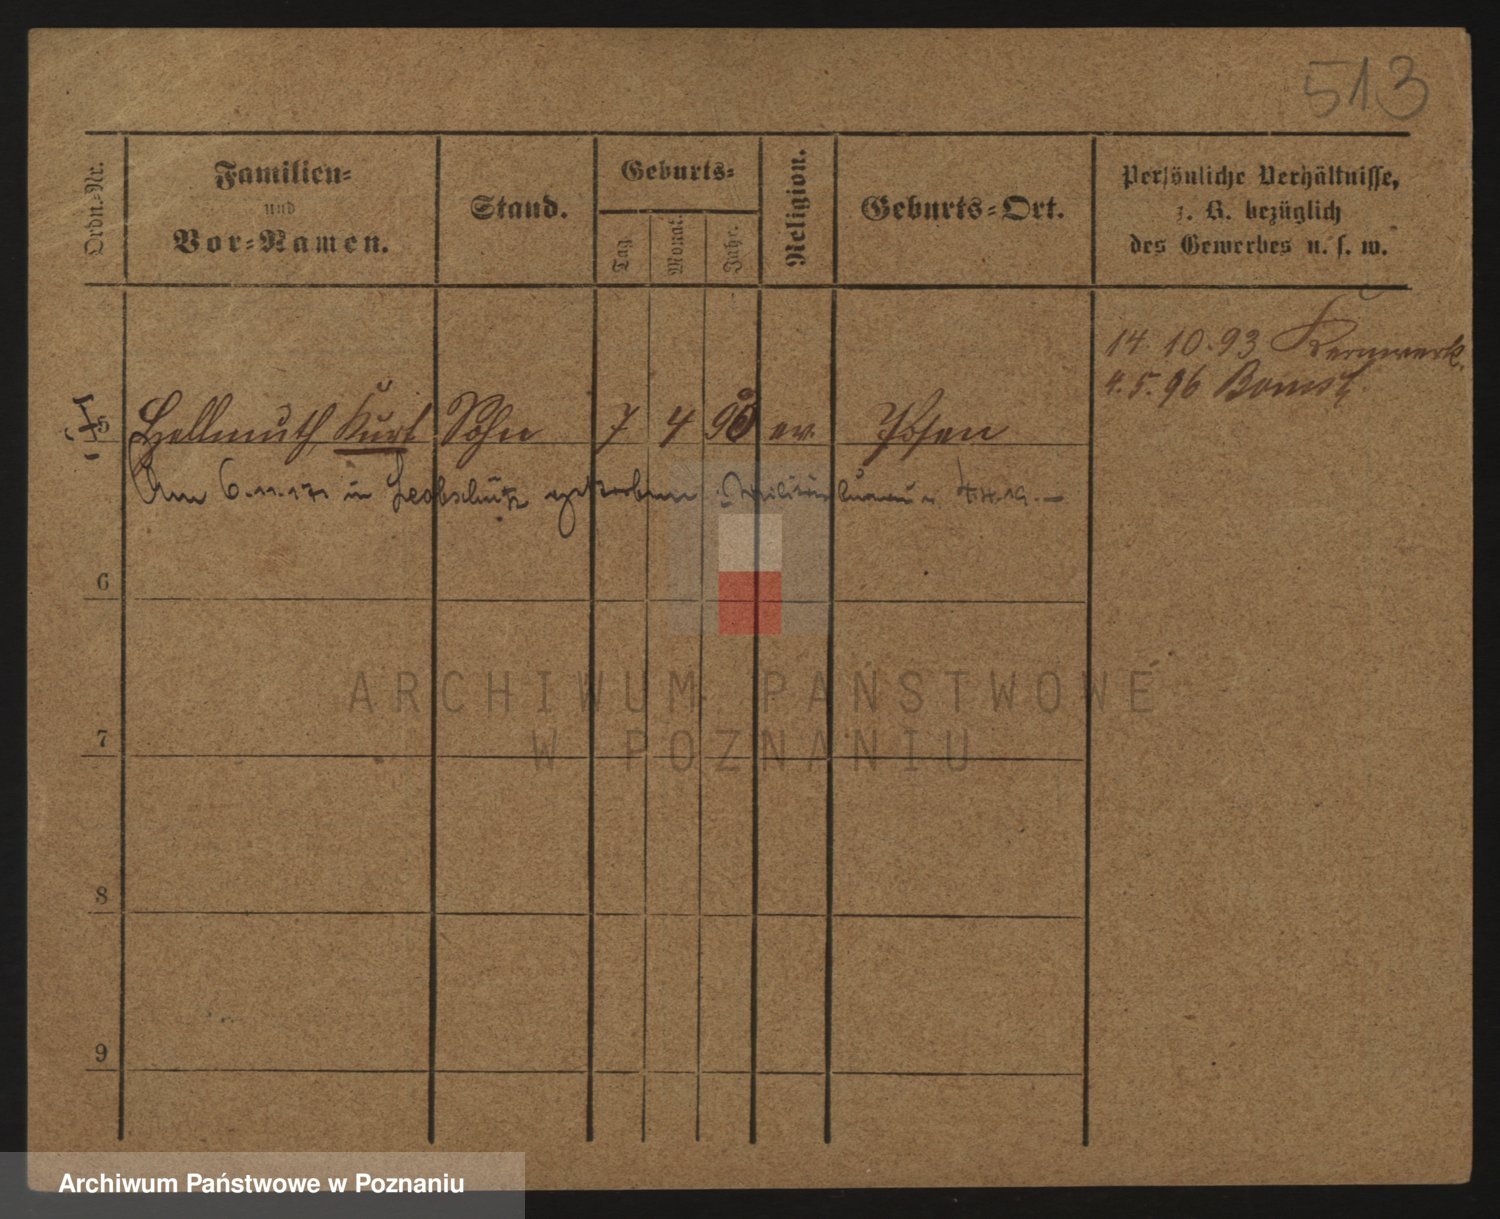 513
Ordn.-Nr.
Familien-
und
Vor-Namen.
Stand.
Geburts-
Tag.
Monat.
Jahr.
Religion.
Geburts-Ort.
Persönliche Verhältnisse,
z. B. bezüglich
des Gewerbes u. s. w.
14. 10. 93 Kernwerk.
4. 5. 96 Bomst.
5 Hellmuth Kurt Sohn 7 4 93 ev. Posen
Am 6. 11. 17 in Leobschütz gestorben.
6
7
8
9
ARCHIWUM PAŃSTWOWE
W POZNANIU
Archiwum Państwowe w Poznaniu